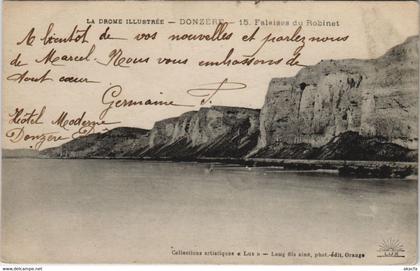 LA DROME ILLUSTRÉE — DONZÈRE — 15. Falaises du Robinet
A bientôt de vos nouvelles et parlez nous
de Marcel. Nous vous embrassons de
tout cœur
Germaine
Hôtel Moderne
Donzère Drôme
Collections artistiques « Lux » — Lang fils aîné, phot.-édit, Orange